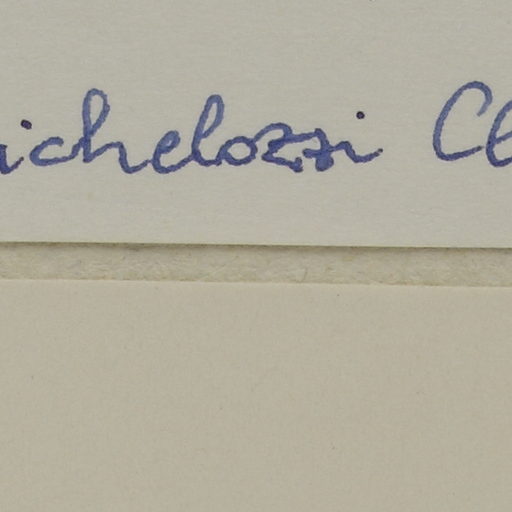 ichelozzi Cl